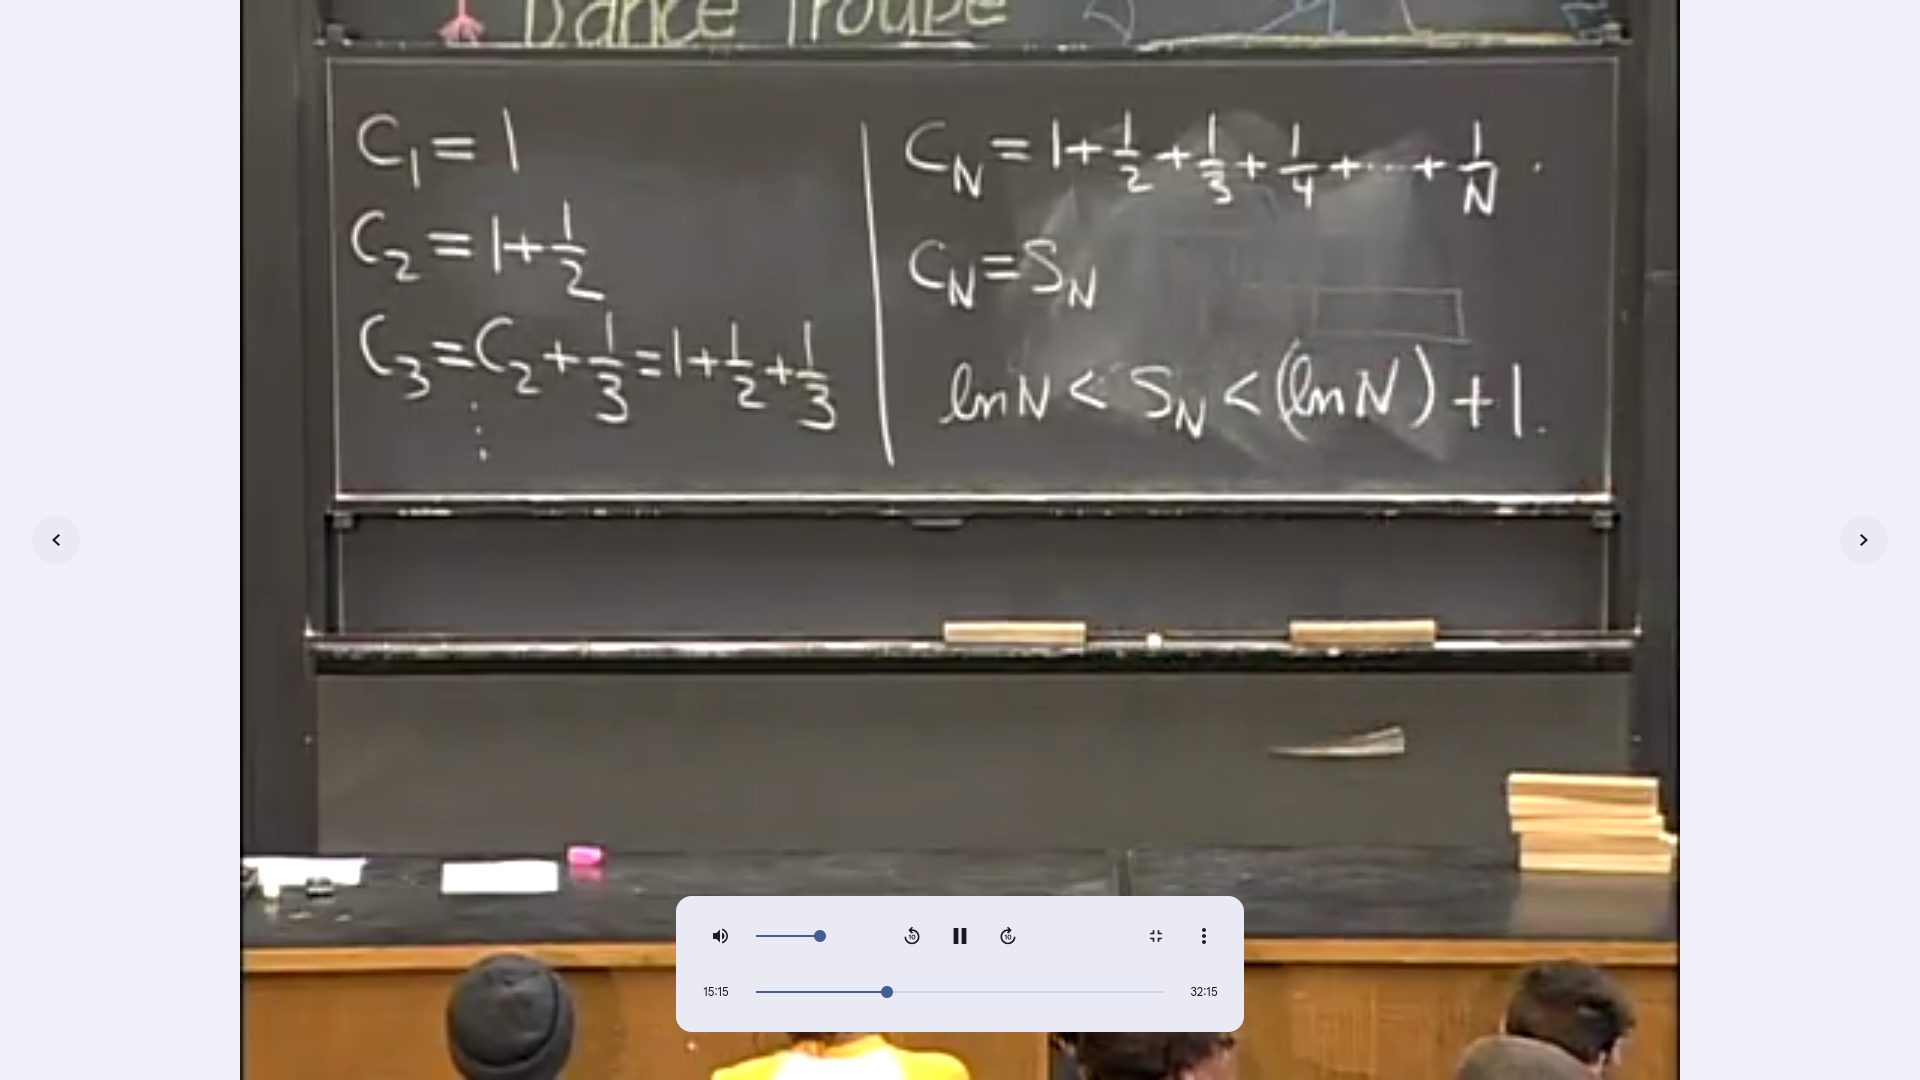 Dance Troupe
C₁ = 1
C₂ = 1 + 1/2
C₃ = C₂ + 1/3 = 1 + 1/2 + 1/3
⋮
C_N = 1 + 1/2 + 1/3 + 1/4 + ⋯ + 1/N .
C_N = S_N
ln N < S_N < (ln N) + 1.
10
10
15:15
32:15